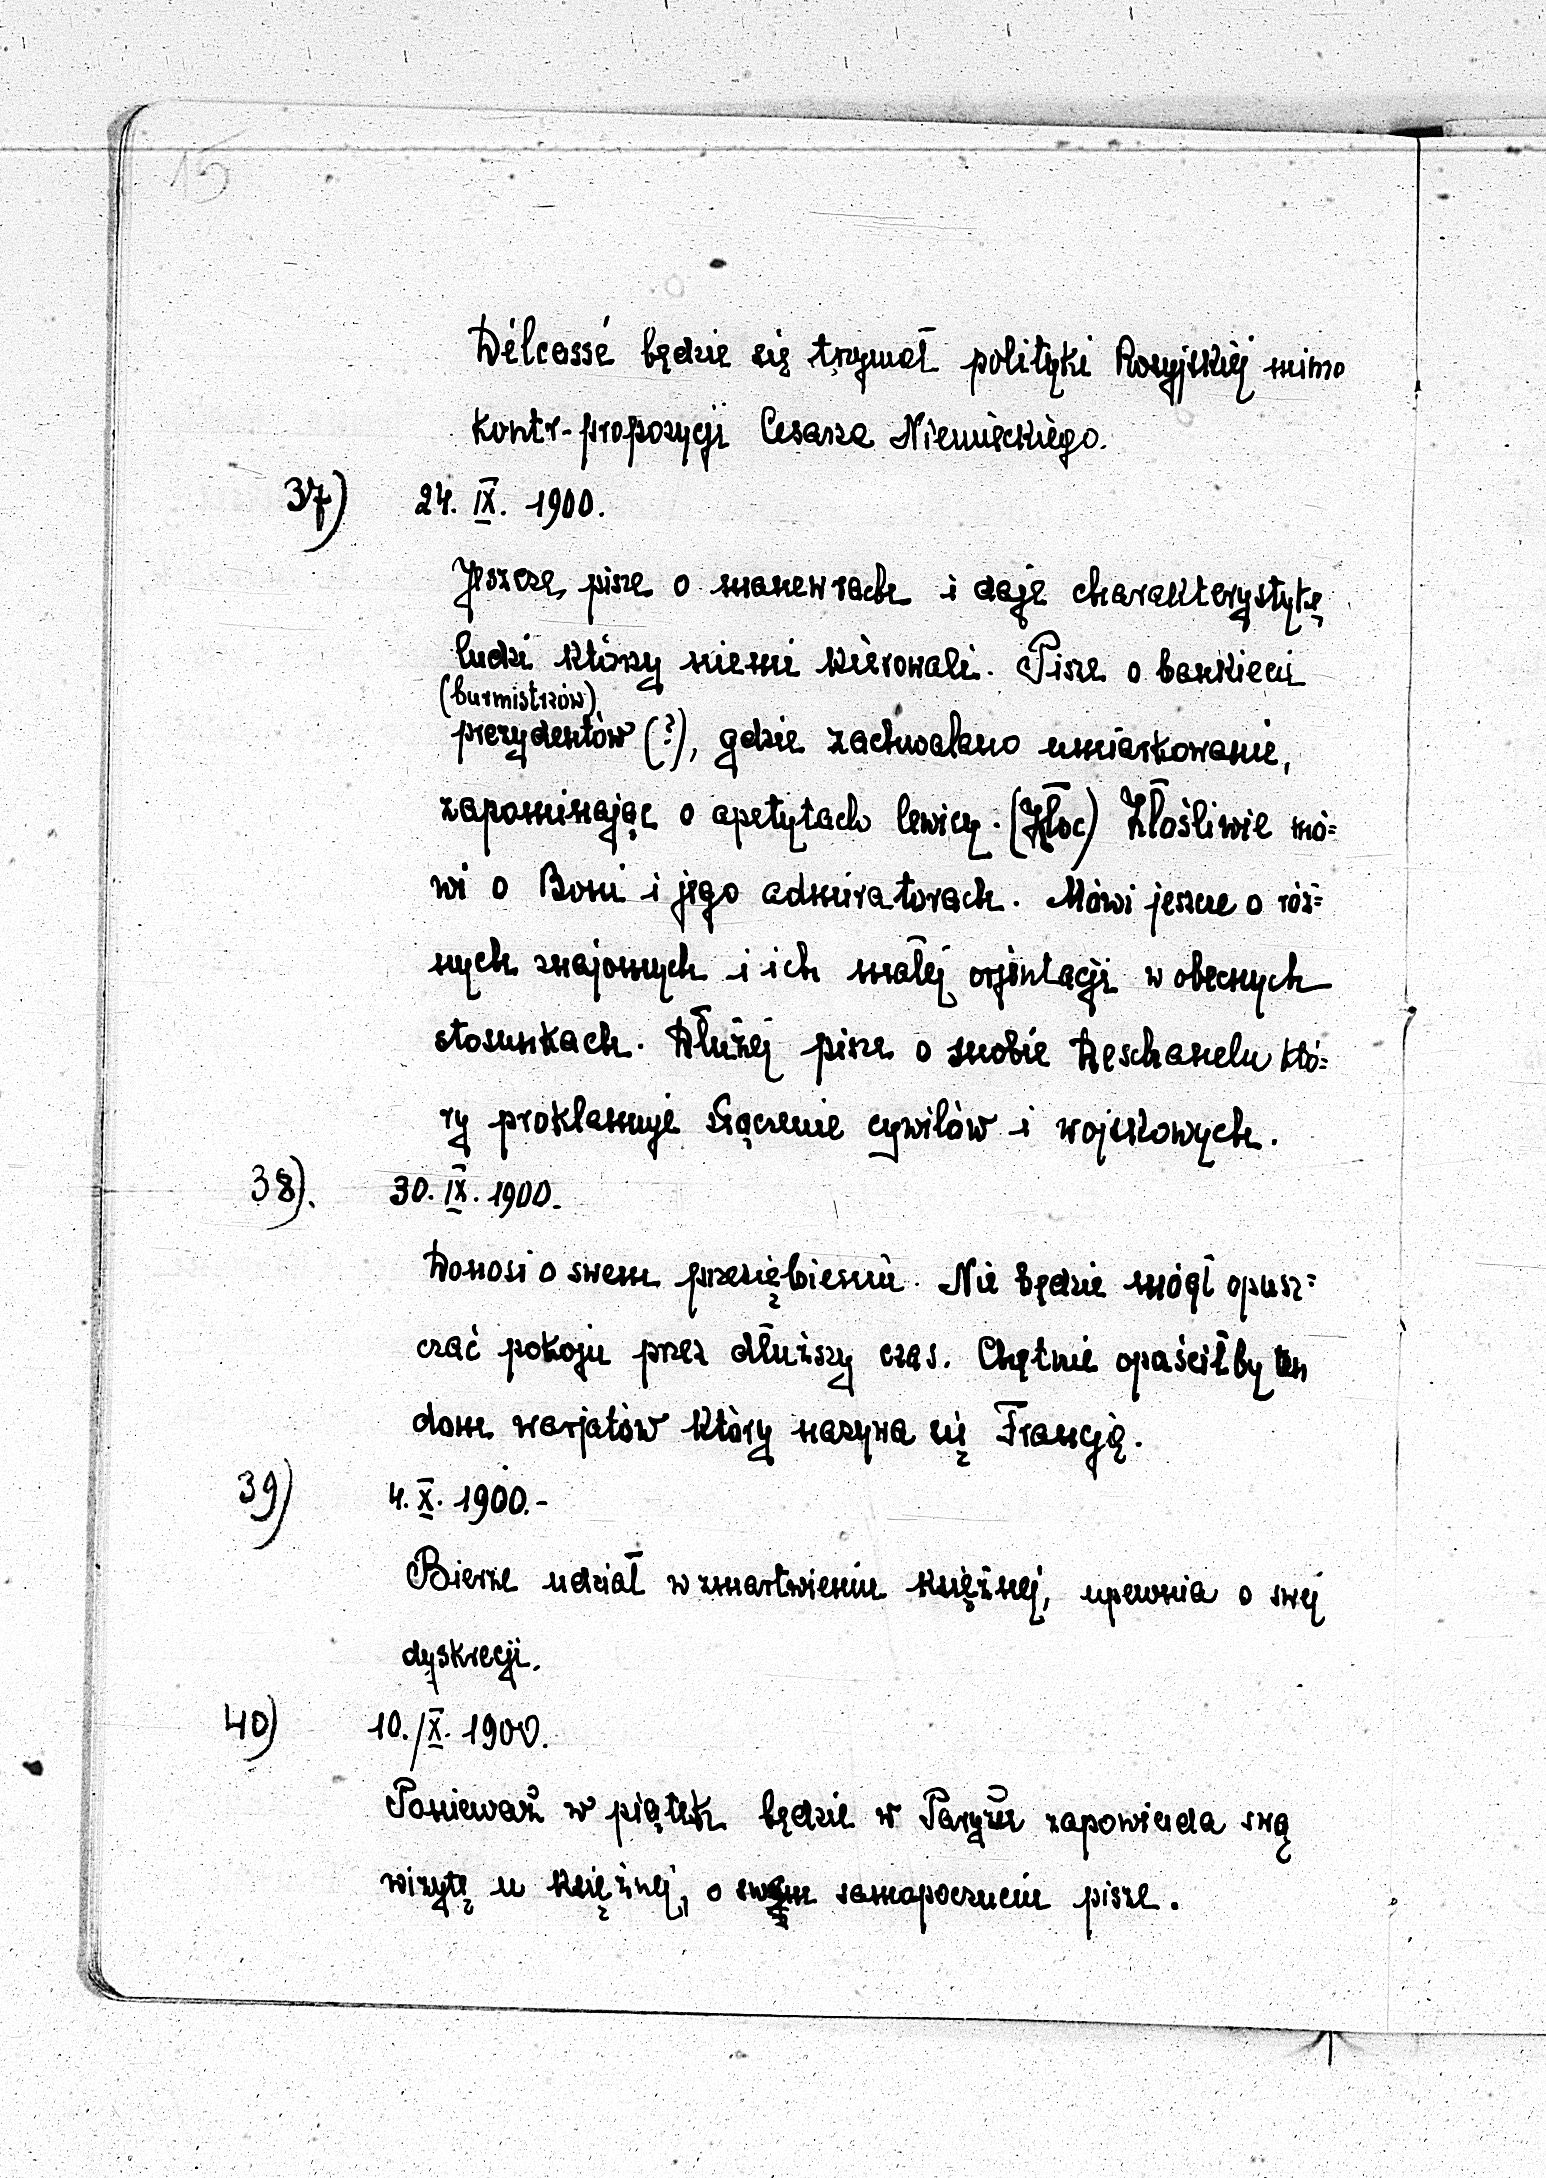 15
Délcassé będzie się trzymał polityki Rosyjskiej mimo
kontr-propozycji Cesarza Niemieckiego.
37) 24. IX. 1900.
Jeszcze, pisze o manewrach i daje charakterystykę
ludzi którzy niemi kierowali. Pisze o bankieci
(burmistrzów)
prezydentów (?), gdzie zachwalano umiarkowanie,
zapominając o apetytach lewicy. (Złoc) Złośliwie mó=
wi o Boni i jego admiratorach. Mówi jeszcze o róż=
nych znajomych i ich małej orjentacji w obecnych
stosunkach. Dłużej pisze o snobie Deschanelu któ=
ry proklamuje złączenie cywilów i wojskowych.
38). 30. IX. 1900.
Donosi o swem przeziębieniu. Nie będzie mógł opusz=
czać pokoju przez dłuższy czas. Chętnie opaściłby ten
dom warjatów który nazywa się Francją.
39) 4. X. 1900.-
Bierze udział w zmartwieniu księżnej, upewnia o swej
dyskrecji.
40) 10./X. 1900.
Ponieważ w piątek będzie w Paryżu zapowiada swą
wizytę u księżnej, o swem samopoczuciu pisze.